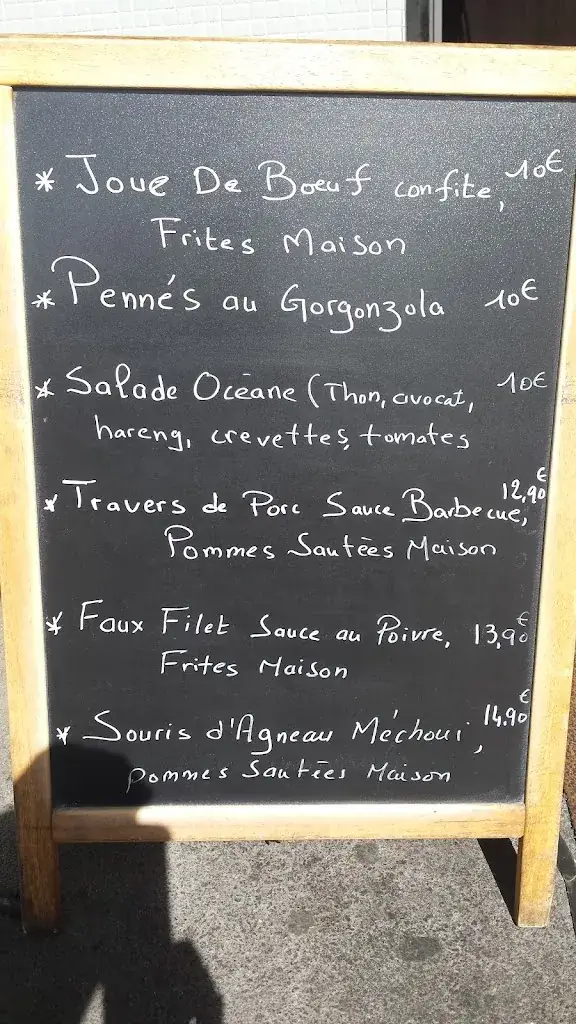 * Joue De Boeuf confite, 10€
Frites Maison
* Pennés au Gorgonzola 10€
* Salade Océane (Thon, avocat, 10€
hareng, crevettes, tomates
* Travers de Porc Sauce Barbecue, 12,90€
Pommes Sautées Maison
* Faux Filet Sauce au Poivre, 13,90€
Frites Maison
* Souris d'Agneau Méchoui, 14.90€
Pommes Sautées Maison